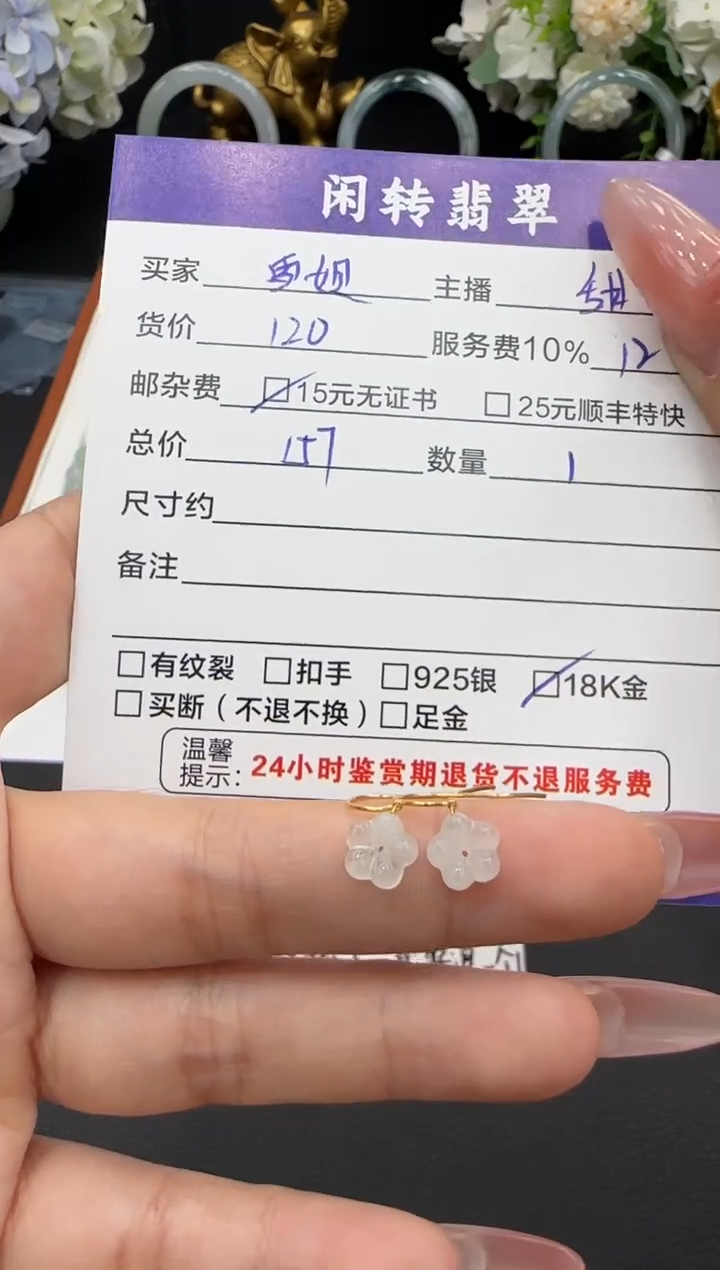 闲转翡翠
买家 马姐 主播
货价 120 服务费10% 12
邮杂费 15元无证书 25元顺丰特快
总价 157 数量 1
尺寸约
备注
有纹裂 扣手 925银 18K金
买断（不退不换） 足金
温馨提示：24小时鉴赏期退货不退服务费